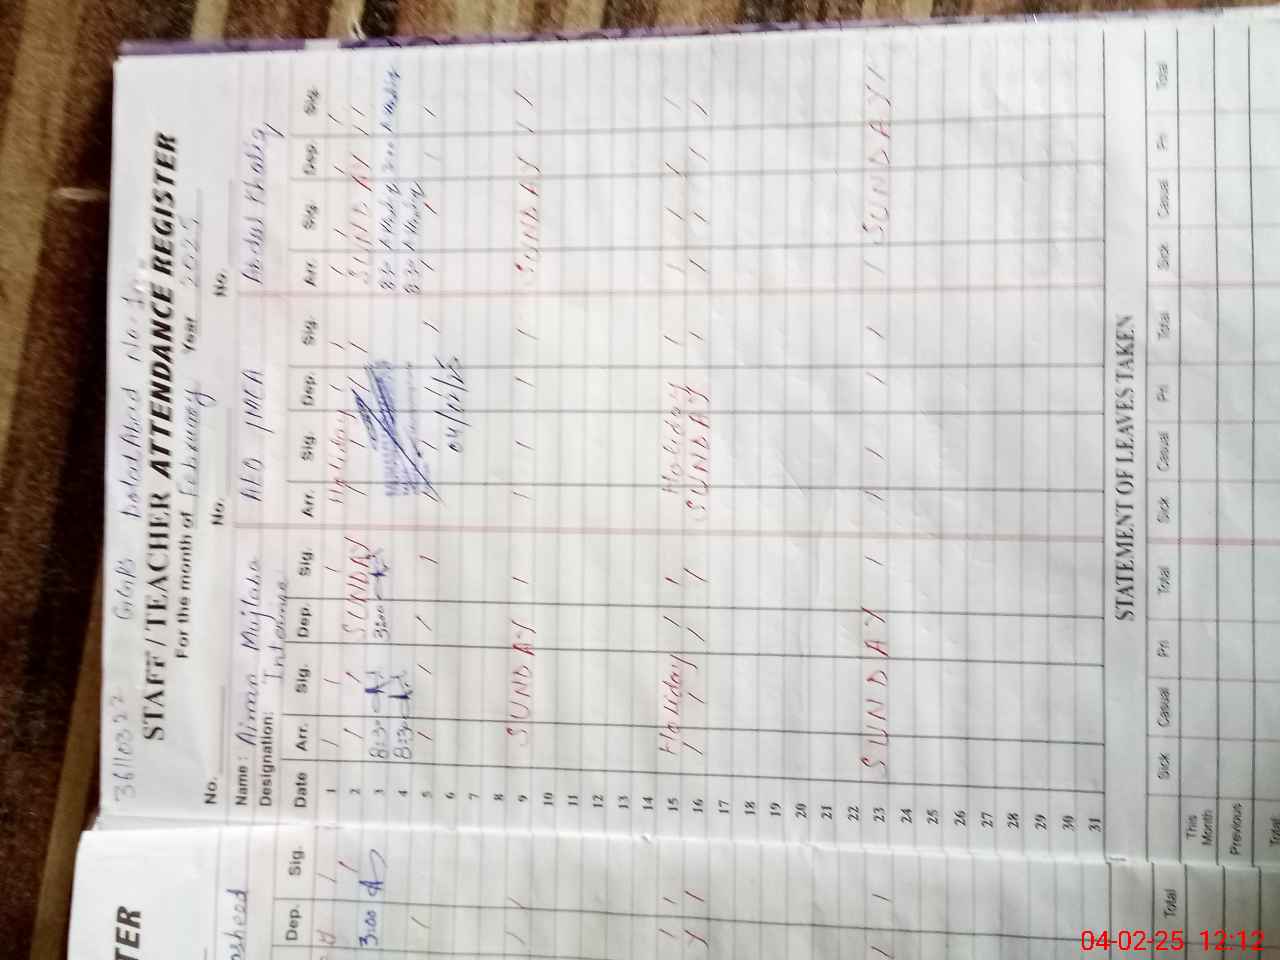 36110322 GGPS
STAFF / TEACHER ATTENDANCE REGISTER
For the month of February Year 2025
No. No. No.
Name: Aiman Mujtaba AEO Abdul Khaliq
Designation: Internee
Date Arr. Sig. Dep. Sig. Arr. Sig. Dep. Sig. Arr. Sig. Dep. Sig.
1 Holiday
2 SUNDAY SUNDAY
3 8:30 3:00 8:30 A Khaliq 3:00 A Khaliq
4 8:30 8:30 A Khaliq
5
6
7
8
9 SUNDAY SUNDAY
10
11
12
13
14
15 Holiday Holiday
16 SUNDAY
17
18
19
20
21
22
23 SUNDAY SUNDAY
24
25
26
27
28
29
30
31
STATEMENT OF LEAVES TAKEN
Sick Casual Pri Total Sick Casual Pri Total Sick Casual Pri Total
This Month
Previous
Total
TER
Dep. Sig.
3:00
Total
04-02-25 12:12